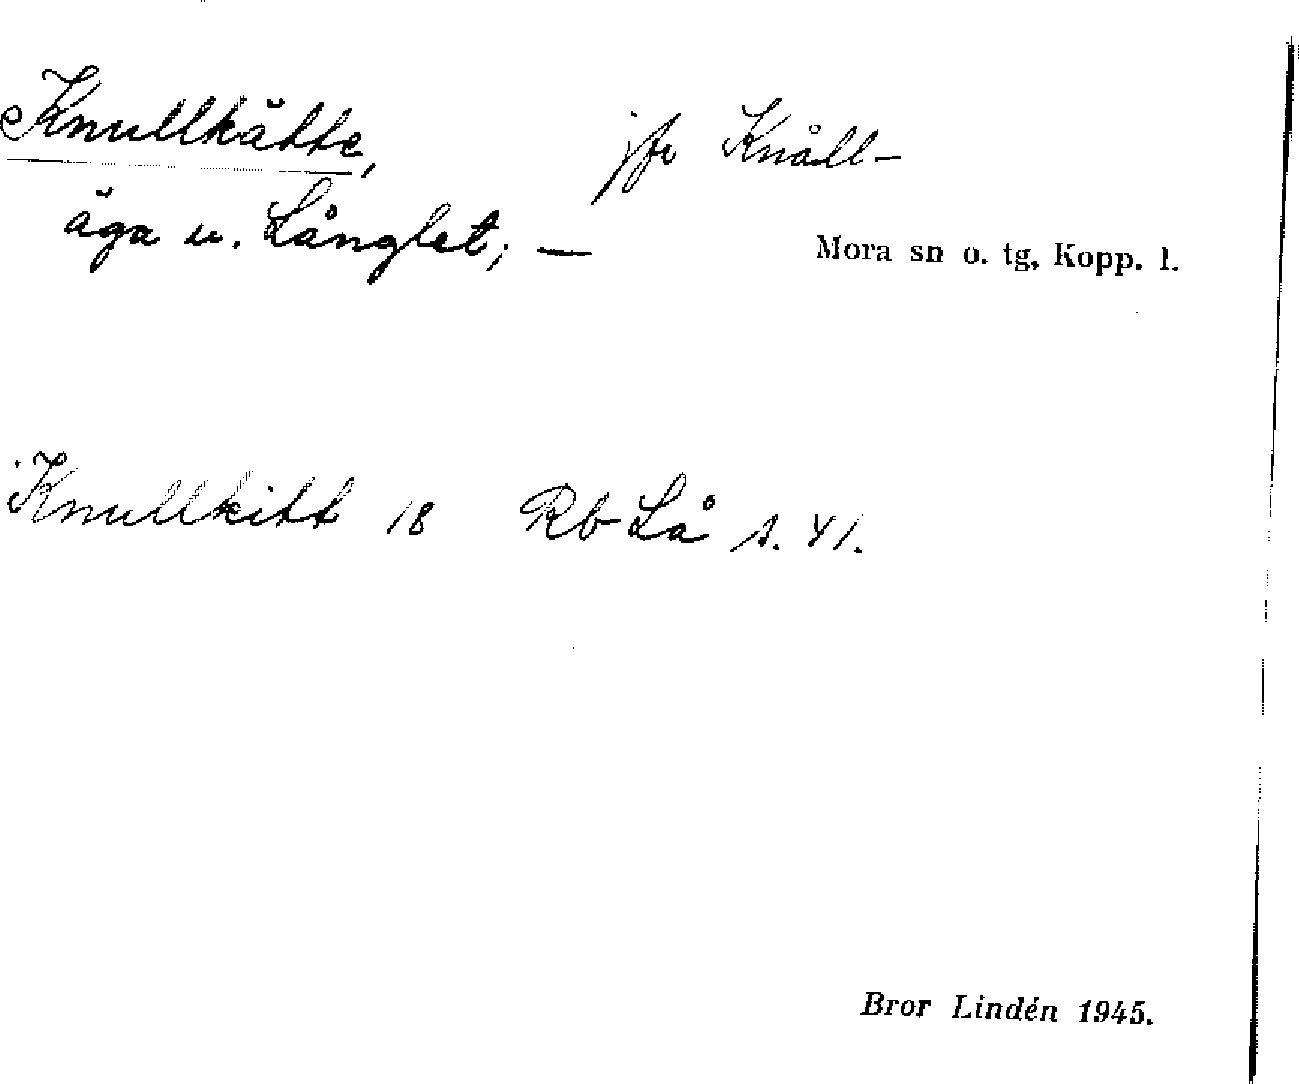 Knullkätte, jfr Knåll-
äga u. Långlet; —
Mora sn o. tg, Kopp. l.
Knullkitt 18 Rb Lå s. 41.
Bror Lindén 1945.